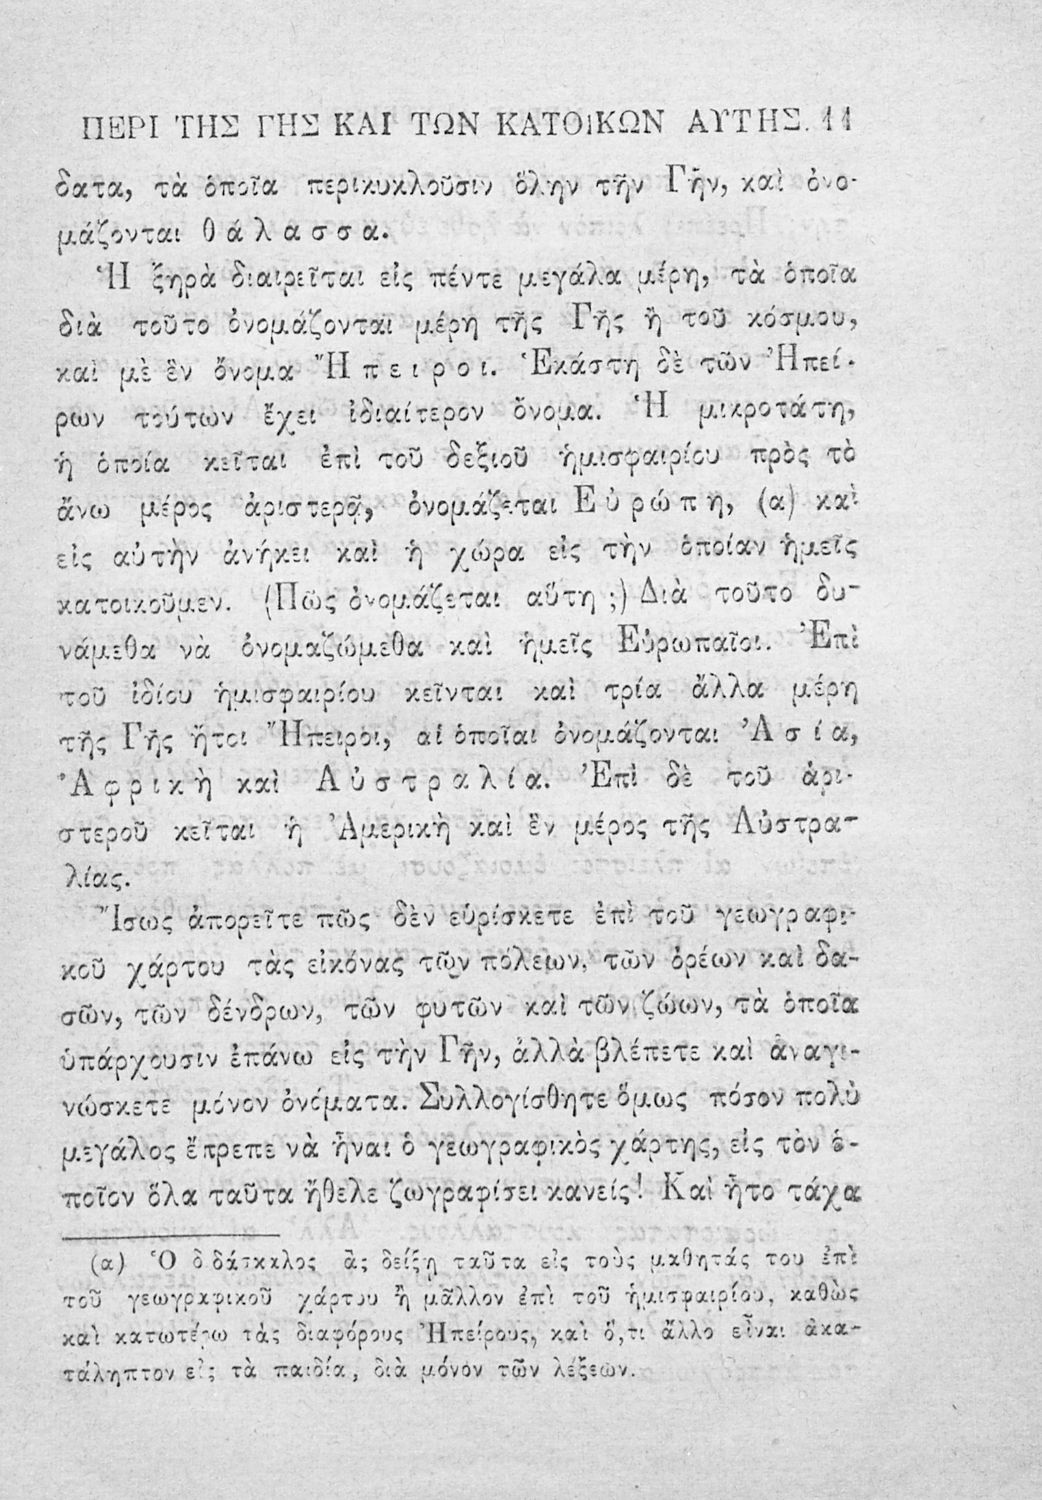 ΠΕΡΙ ΤΗΣ ΓΗΣ ΚΑΙ ΤΩΝ ΚΑΤΟΙΚΩΝ ΑΥΤΗΣ. 11
δατα, τὰ ὁποῖα περικυκλοῦσιν ὅλην τὴν Γῆν, καὶ ὀνο-
μάζονται θ ά λ α σ σ α.
Ἡ ξηρὰ διαιρεῖται εἰς πέντε μεγάλα μέρη, τὰ ὁποῖα
διὰ τοῦτο ὀνομάζονται μέρη τῆς Γῆς ἢ τοῦ κόσμου,
καὶ μὲ ἓν ὄνομα Ἤ π ε ι ρ ο ι. Ἑκάστη δὲ τῶν Ἠπεί-
ρων τούτων ἔχει ἰδιαίτερον ὄνομα. Ἡ μικροτάτη,
ἡ ὁποία κεῖται ἐπὶ τοῦ δεξιοῦ ἡμισφαιρίου πρὸς τὸ
ἄνω μέρος ἀριστερᾷ, ὀνομάζεται Ε ὐ ρ ώ π η, (α) καὶ
εἰς αὐτὴν ἀνήκει καὶ ἡ χώρα εἰς τὴν ὁποίαν ἡμεῖς
κατοικοῦμεν. (Πῶς ὀνομάζεται αὕτη ;) Διὰ τοῦτο δυ-
νάμεθα νὰ ὀνομαζώμεθα καὶ ἡμεῖς Εὐρωπαῖοι. Ἐπὶ
τοῦ ἰδίου ἡμισφαιρίου κεῖνται καὶ τρία ἄλλα μέρη
τῆς Γῆς ἤτοι Ἤπειροι, αἱ ὁποῖαι ὀνομάζονται Ἀ σ ί α,
Ἀ φ ρ ι κ ὴ καὶ Α ὐ σ τ ρ α λ ί α. Ἐπὶ δὲ τοῦ ἀρι-
στεροῦ κεῖται ἡ Ἀμερικὴ καὶ ἓν μέρος τῆς Αὐστρα-
λίας.
Ἴσως ἀπορεῖτε πῶς δὲν εὑρίσκετε ἐπὶ τοῦ γεωγραφι-
κοῦ χάρτου τὰς εἰκόνας τῶν πόλεων, τῶν ὀρέων καὶ δα-
σῶν, τῶν δένδρων, τῶν φυτῶν καὶ τῶν ζώων, τὰ ὁποῖα
ὑπάρχουσιν ἐπάνω εἰς τὴν Γῆν, ἀλλὰ βλέπετε καὶ ἀναγι-
νώσκετε μόνον ὀνόματα. Συλλογίσθητε ὅμως πόσον πολὺ
μεγάλος ἔπρεπε νὰ ἦναι ὁ γεωγραφικὸς χάρτης, εἰς τὸν ὁ-
ποῖον ὅλα ταῦτα ἤθελε ζωγραφίσει κανείς! Καὶ ἦτο τάχα
(α) Ὁ διδάσκαλος ἂς δείξῃ ταῦτα εἰς τοὺς μαθητάς του ἐπὶ
τοῦ γεωγραφικοῦ χάρτου ἢ μᾶλλον ἐπὶ τοῦ ἡμισφαιρίου, καθὼς
καὶ κατωτέρω τὰς διαφόρους Ἠπείρους, καὶ ὅ,τι ἄλλο εἶναι ἀκα-
τάληπτον εἰς τὰ παιδία, διὰ μόνον τῶν λέξεων.